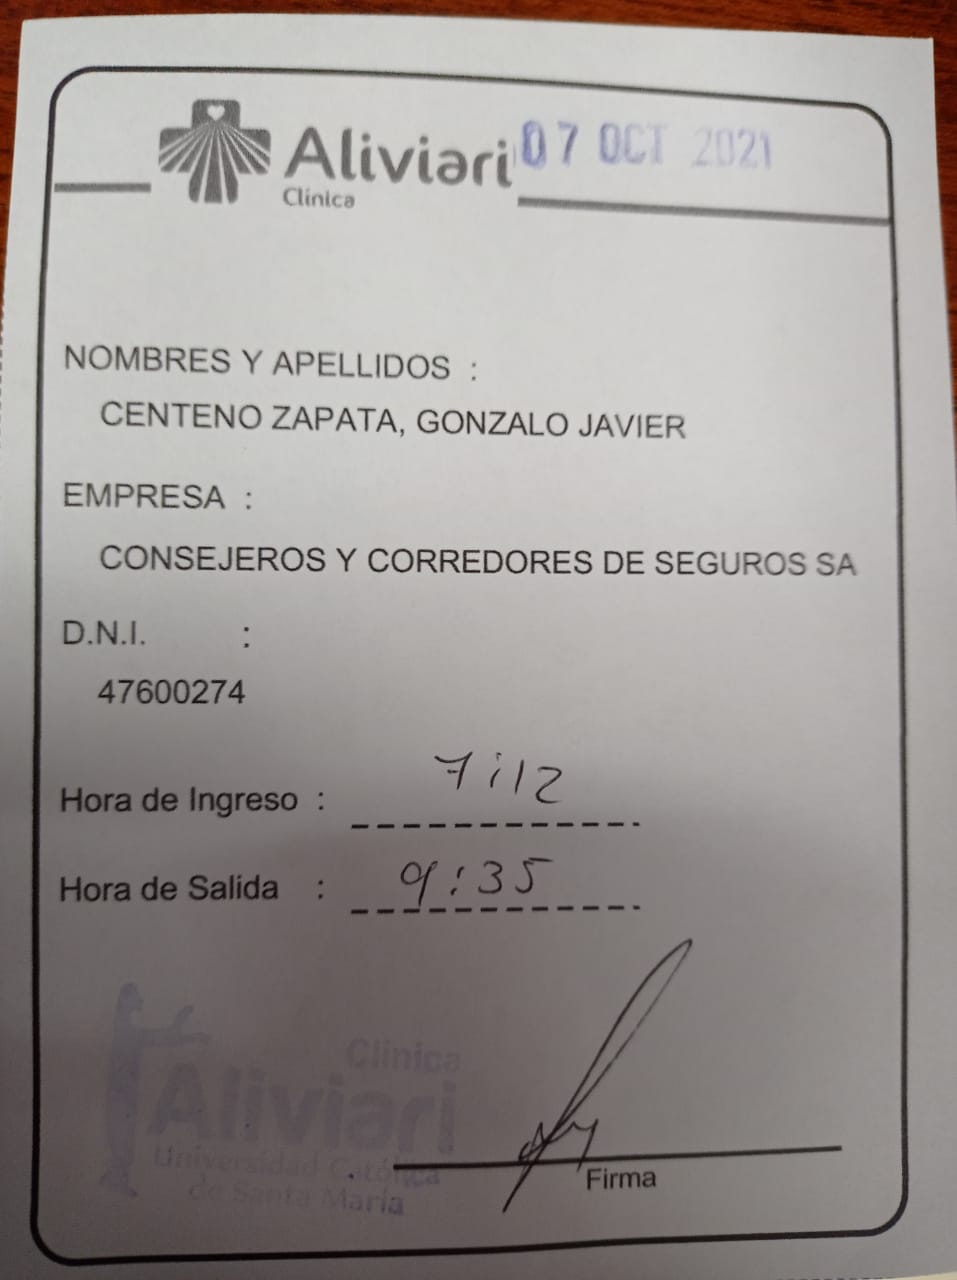 Aliviari 07 OCT 2021
Clínica
NOMBRES Y APELLIDOS :
CENTENO ZAPATA, GONZALO JAVIER
EMPRESA :
CONSEJEROS Y CORREDORES DE SEGUROS SA
D.N.I. :
47600274
Hora de Ingreso : 7:12
Hora de Salida : 9:35
Clínica
Aliviari
Universidad Católica
de Santa María
Firma